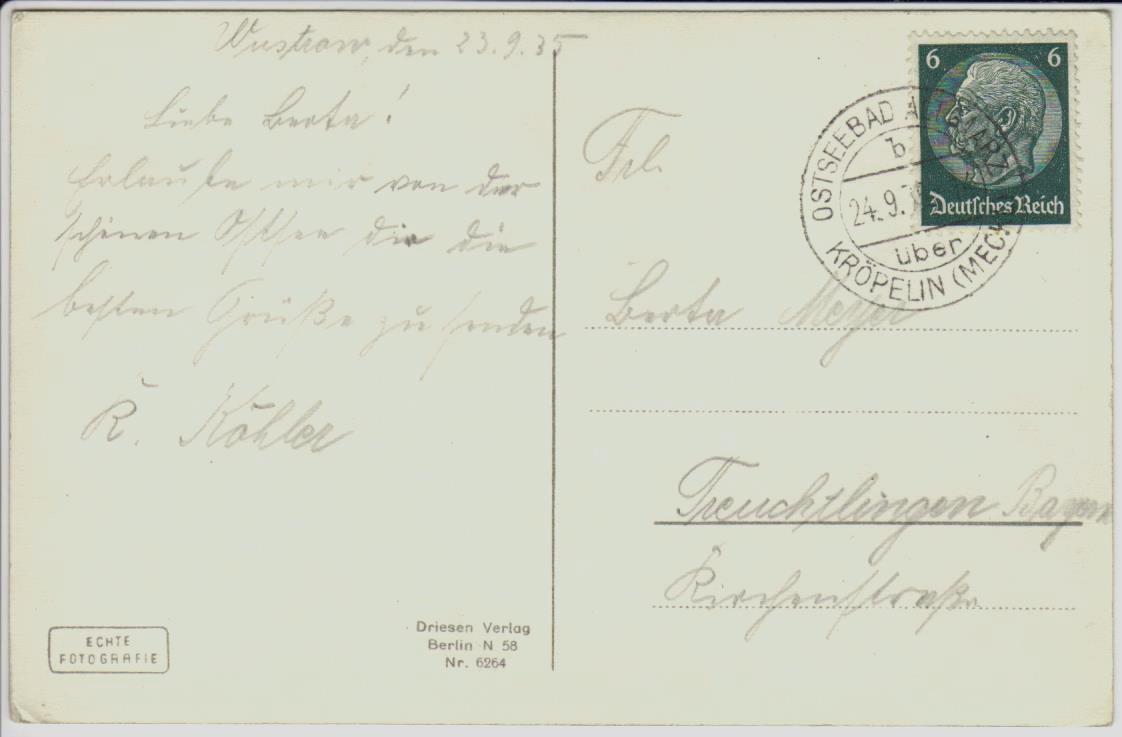 Wustrow, den 23.9.35
Liebe Berta!
Erlaube mir von der
schönen Ostsee dir die
besten Grüße zu senden
R. Köhler
ECHTE
FOTOGRAFIE
Driesen Verlag
Berlin N 58
Nr. 6264
6 6
Deutsches Reich
OSTSEEBAD
b
24.9.
über
KRÖPELIN (MECK
Frl.
Berta Meyer
Treuchtlingen Bayern
Kirchenstraße